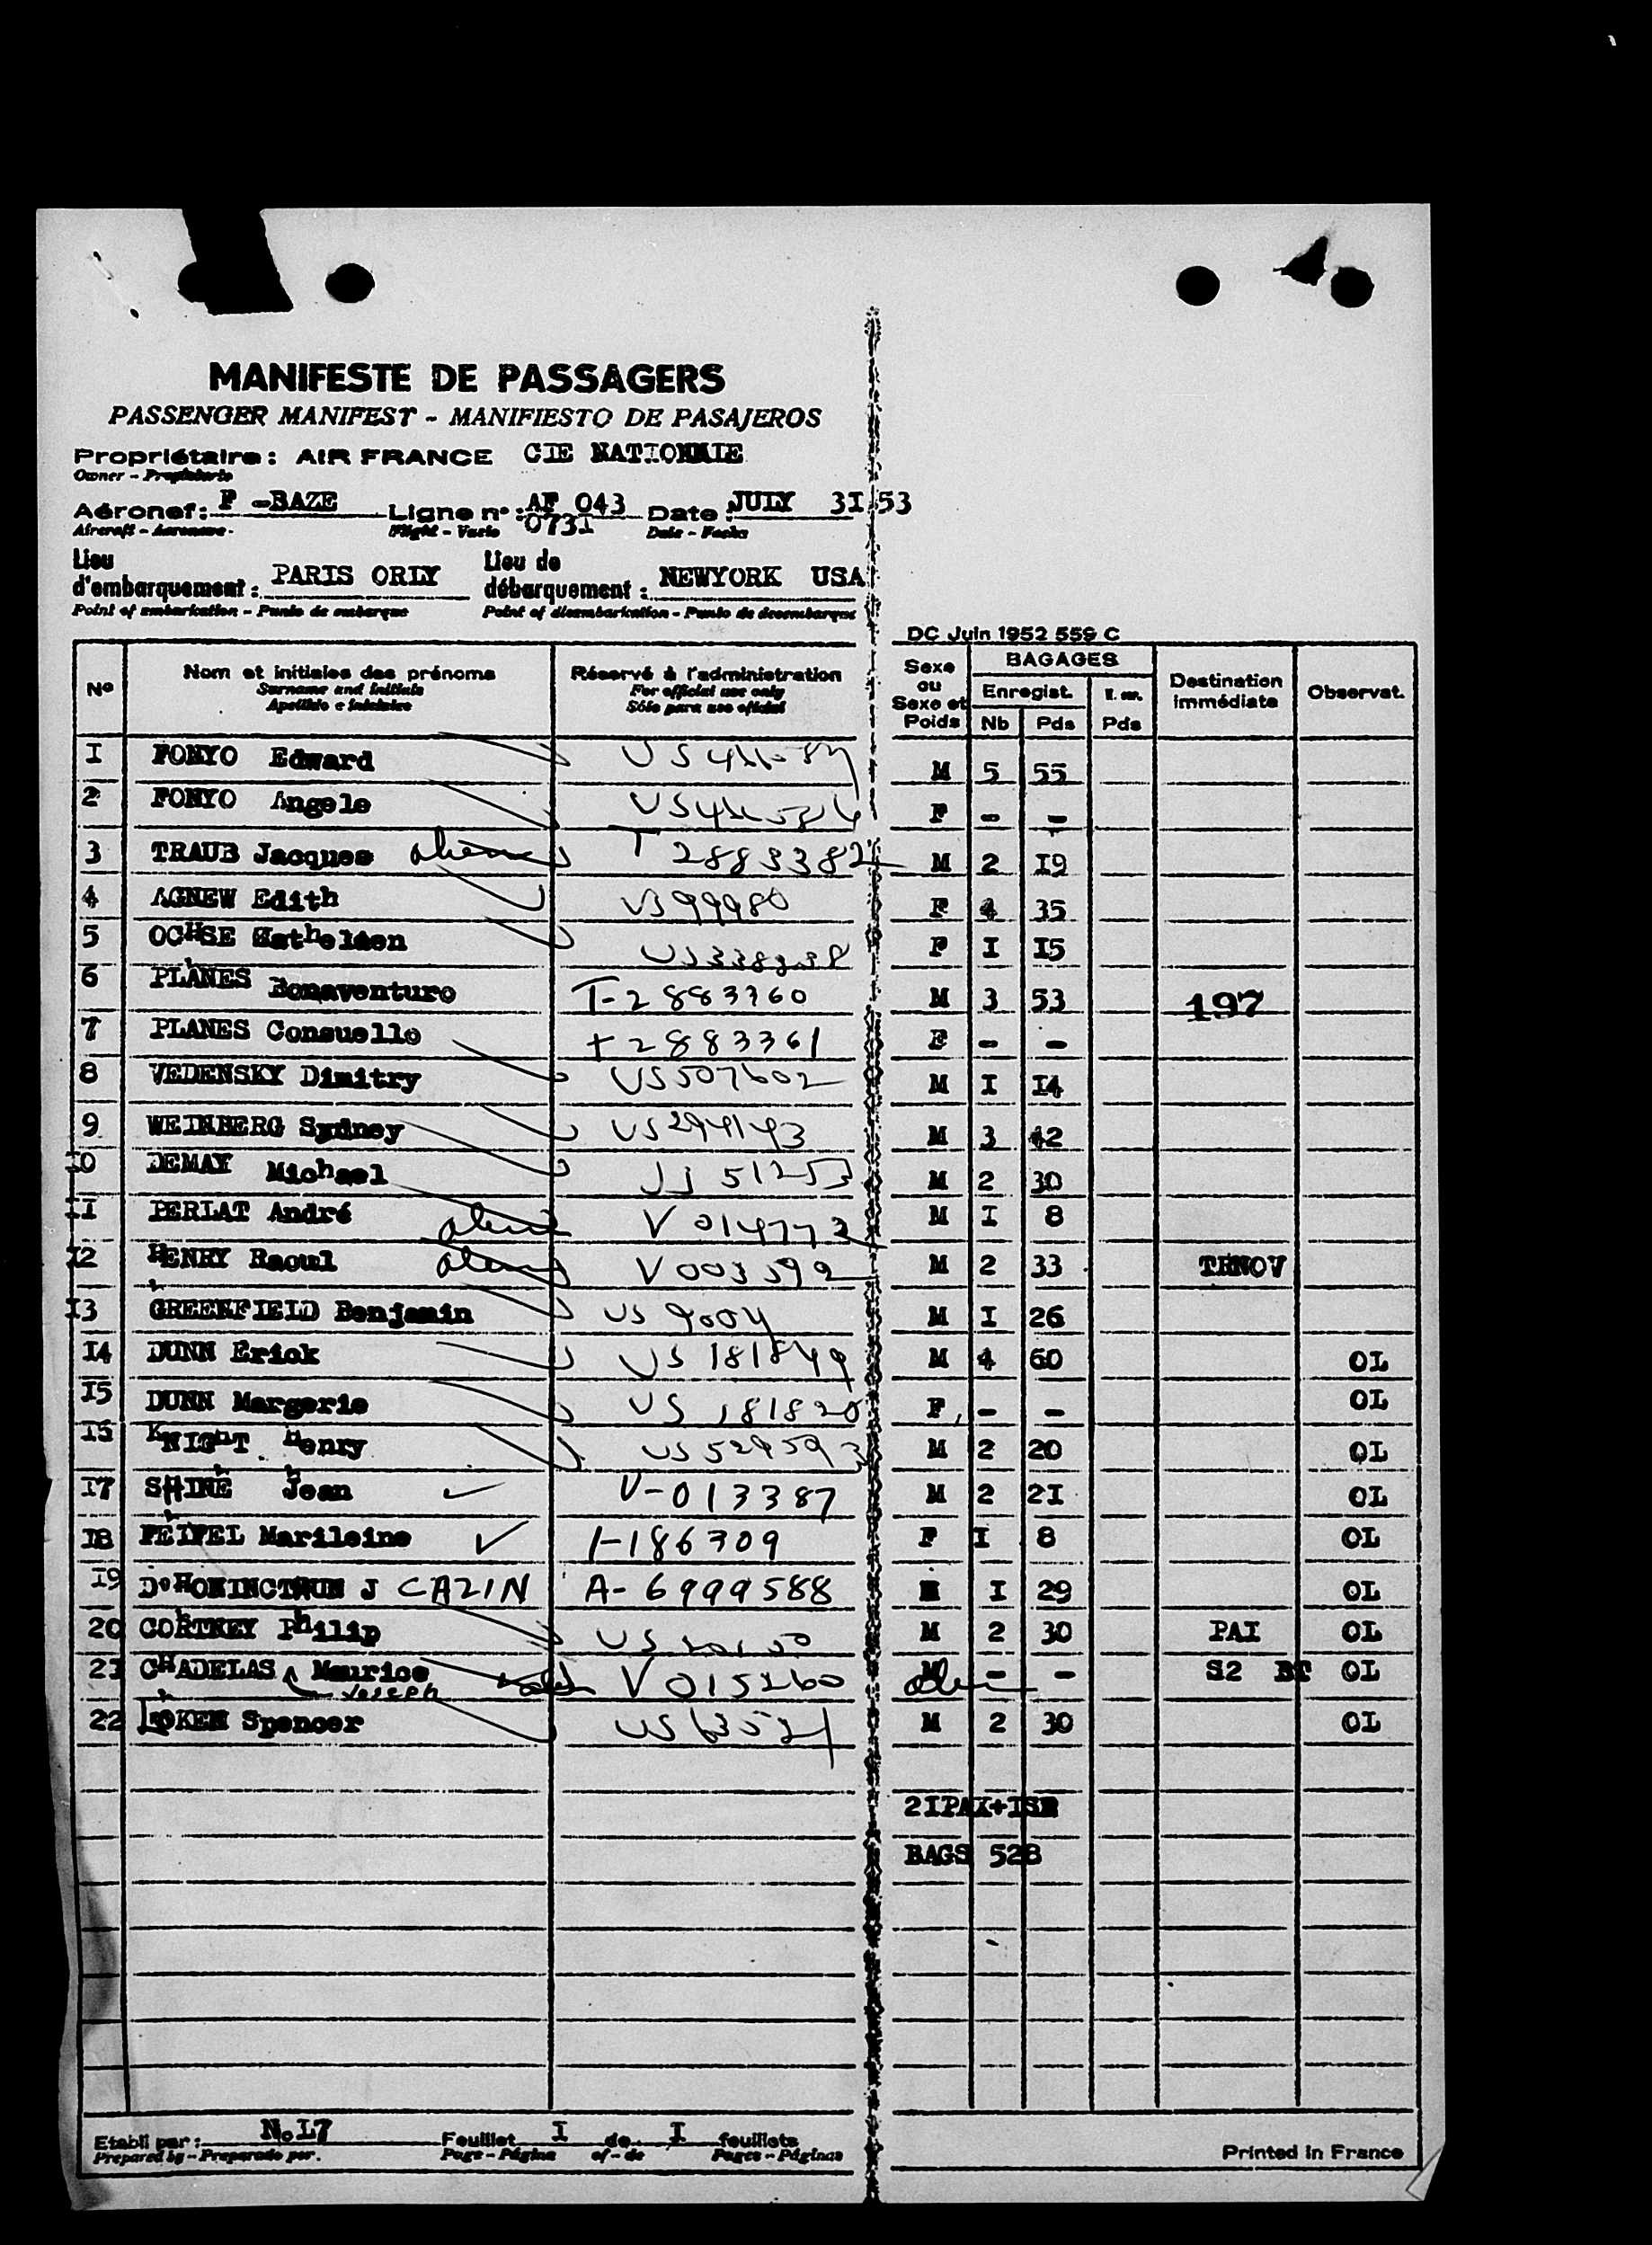 MANIFESTE DE PASSAGERS
PASSENGER MANIFEST - MANIFIESTO DE PASAJEROS
Propriétaire : AIR FRANCE CIE NATIONALE
Owner - Propietario
Aéronef : F -BAZE Ligne n° : AF 043 Date : JULY 3I 53
073I
Aircraft - Aeronave - Flight - Vuelo Date - Fecha
Lieu d'embarquement : PARIS ORLY Lieu de débarquement : NEWYORK USA
Point of embarkation - Punto de embarque Point of disembarkation - Punto de desembarque
DC Juin 1952 559 C
N° Nom et initiales des prénoms Réservé à l'administration Sexe ou Sexe et Poids BAGAGES Destination immédiate Observat.
Surname and initials For official use only Enregist.
Apellido e iniciales Sólo para uso oficial Nb Pds Pds
I FONYO Edward M 5 55
2 FONYO Angele F - -
3 TRAUB Jacques alien T 2883382 M 2 I9
4 AGNEW Edith US 99980 F 4 35
5 OCHSE F I I5
6 PLANES Bonaventuro T-2883360 M 3 53 197
7 PLANES Consuello T 2883361 F - -
8 VEDENSKY Dimitry US507602 M I I4
9 WEINBERG Sydney US294143 M 3 42
I0 DEMAY Michael 51253 M 2 30
II PERLAT André alien V 014772 M I 8
I2 HENRY Raoul alien V 003592 M 2 33 TRNOV
I3 GREENFIELD Benjamin US 9004 M I 26
I4 DUNN Erick US 181849 M 4 60 OL
I5 DUNN Margerie US 181820 F - - OL
I6 KNIGHT Henry US 529593 M 2 20 OL
I7 SHINE Jean V-013387 M 2 2I OL
I8 FEIFEL Marileine 1-186309 F I 8 OL
I9 J CAZIN A-6999588 I 29 OL
20 CORTNEY Philip US M 2 30 PAI OL
2I CHADELAS Maurice V 015260 alien - - S2 OL
Joseph
22 LOKEN Spencer US 63521 M 2 30 OL
2IPAX+ISR
BAGS 528
Etabli par : N.L7 Feuillet I de I feuillets
Prepared by - Preparado por. Page - Página of - de Pages - Páginas
Printed in France